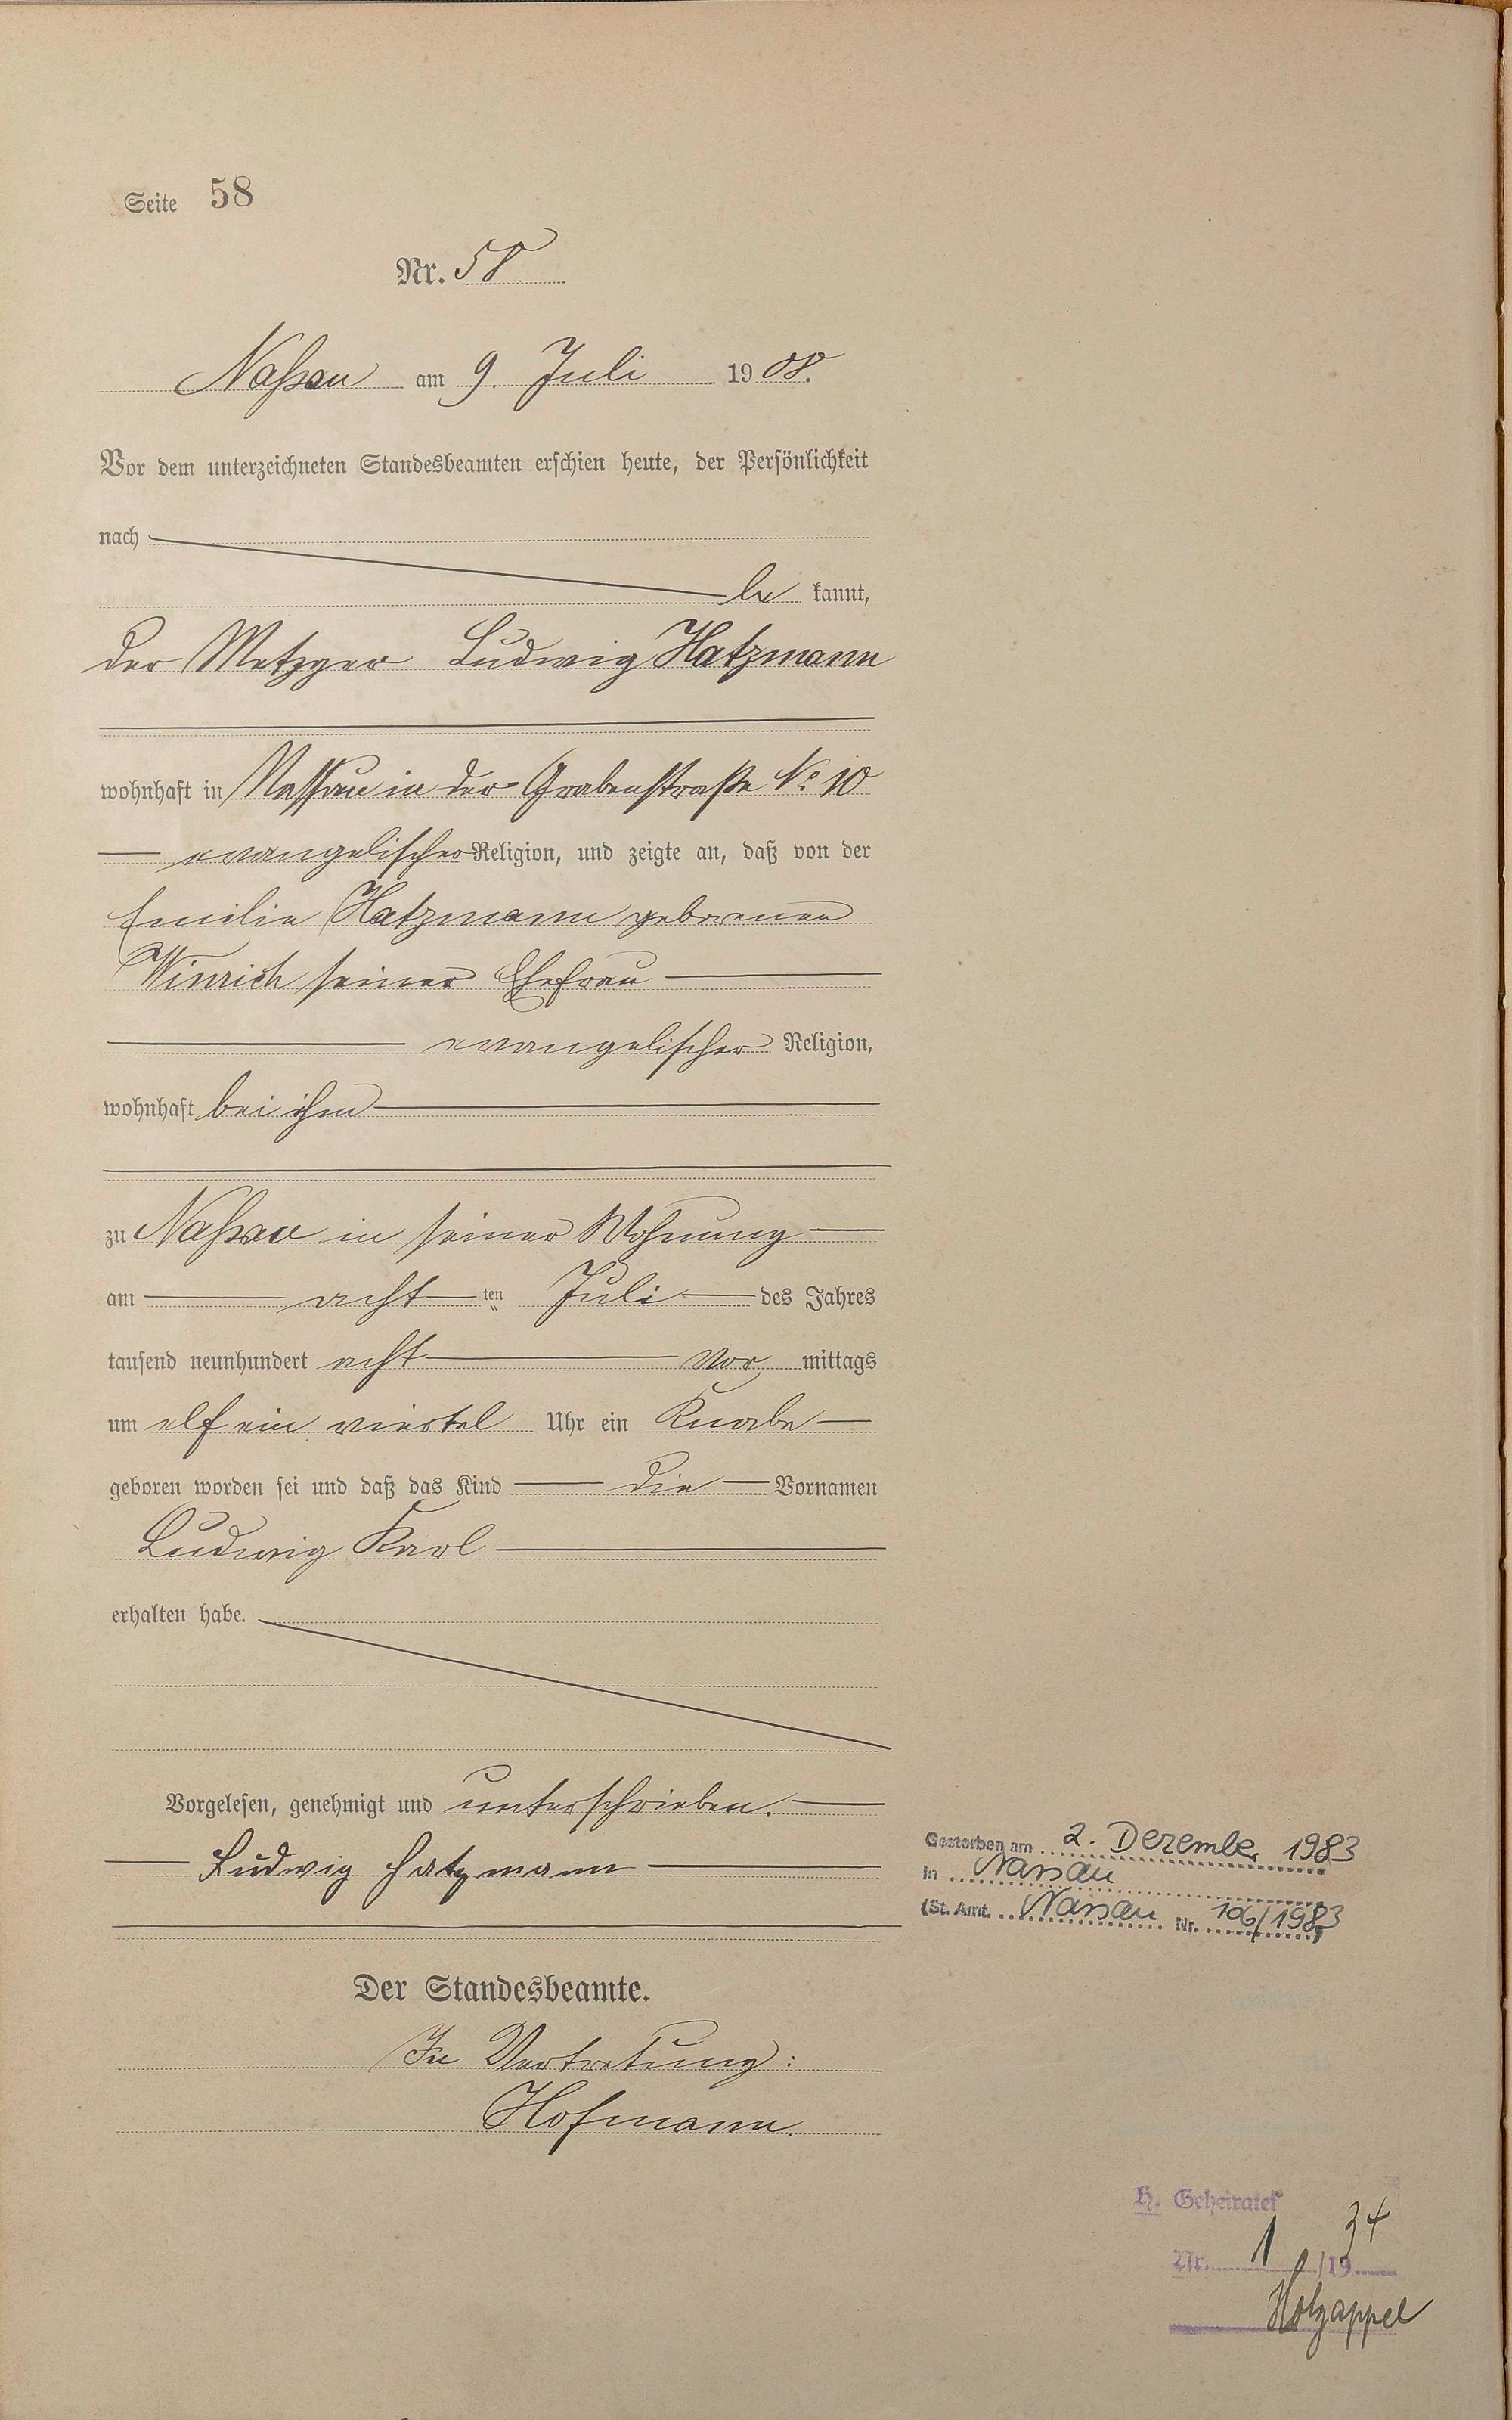 Seite 58
Nr. 58
Nassau am 9. Juli 1908.
Vor dem unterzeichneten Standesbeamten erschien heute, der Persönlichkeit
nach
be kannt,
der Metzger Ludwig Hatzmann
wohnhaft in Nassau in der Grabenstraße No 10
evangelischer Religion, und zeigte an, daß von der
Emilie Hatzmann geborenen
Winrich seiner Ehefrau
evangelischer Religion,
wohnhaft bei ihm
zu Nassau in seiner Wohnung
am acht ten Juli des Jahres
tausend neunhundert acht Vor mittags
um elf ein viertel Uhr ein Knabe
geboren worden sei und daß das Kind die Vornamen
Ludwig Karl
erhalten habe.
Vorgelesen, genehmigt und unterschrieben.
Ludwig Hatzmann
Der Standesbeamte.
In Vertretung:
Hofmann.
Gestorben am 2. Dezember 1983
in Nassau
(St. Amt. Nassau Nr. 106/1983
H. Geheiratet
Nr. 1 /1934
Holzappel